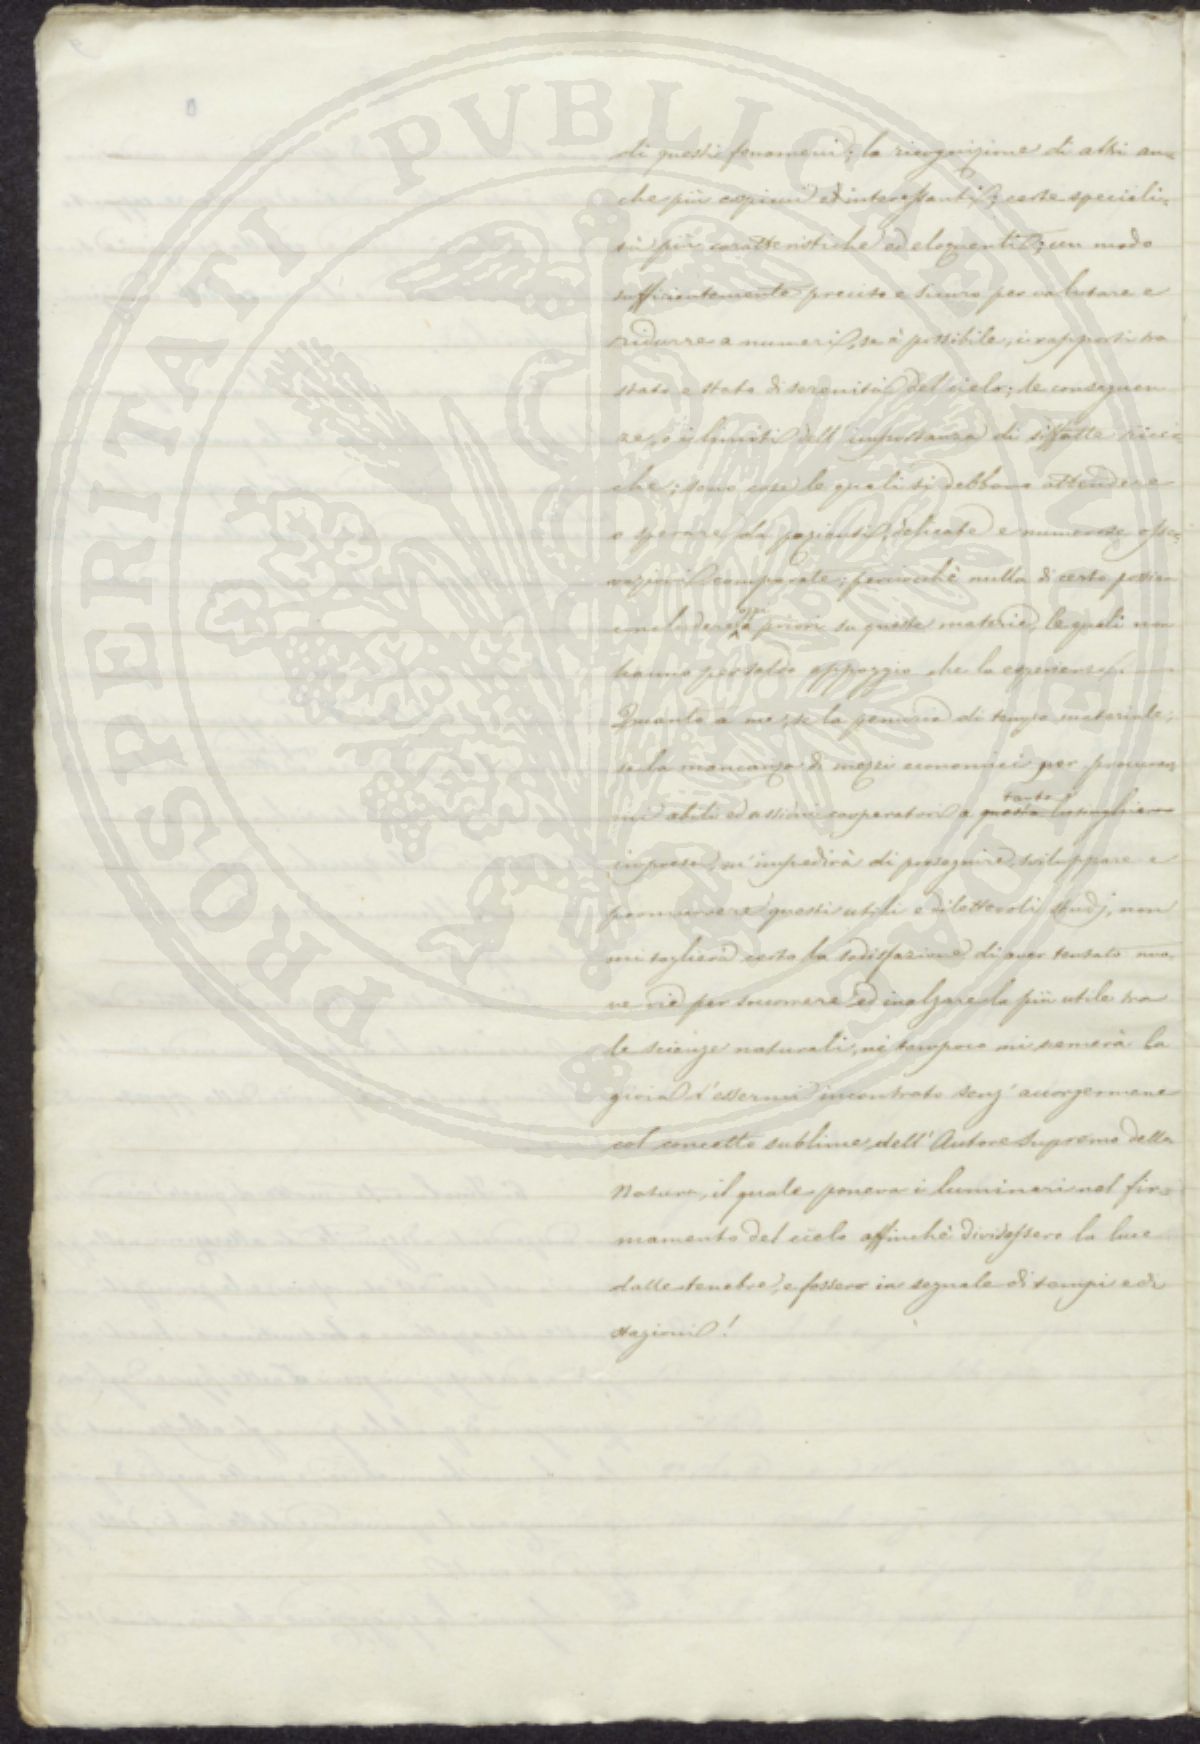 PROSPERITATI PVBLICAE AVGENDAE
di questi fenomeni; la ricognizione di altri an=
che più copiosi ed interessanti; certe speciali=
tà più caratteristiche ed eloquenti; un modo
sufficientemente preciso e sicuro per valutare e
ridurre a numeri, se è possibile, i rapporti tra
stato e stato di serenità del cielo; le conseguen
ze, o i limiti dell'importanza di siffatte ricer=
che; sono cose le quali si debbono attendere
o sperare da pazienti, delicate e numerose osser=
vazioni comparate; perciocchè nulla di certo possiam
concludere a priori su queste materie, le quali non
hanno per saldo appoggio che la esperienza.
Quanto a me, se la penuria di tempo materiale;
se la mancanza di mezzi economici per procurar=
mi abili ed assidui cooperatori a questa lusinghiera
tanta
impresa, m'impedirà di proseguire, sviluppare e
promuovere questi utili e dilettevoli studj, non
mi toglierà certo la sodisfazione di aver tentato nuo=
ve vie per soccorrere ed inalzare la più utile tra
le scienze naturali, nè tampoco mi scemerà la
gioia d'essermi incontrato senz'accorgermene
col concetto sublime dell'Autore Supremo della
Natura, il quale poneva i luminari nel fir=
mamento del cielo affinchè dividessero la luce
dalle tenebre, e fossero in segnale di tempi e di
stagioni!